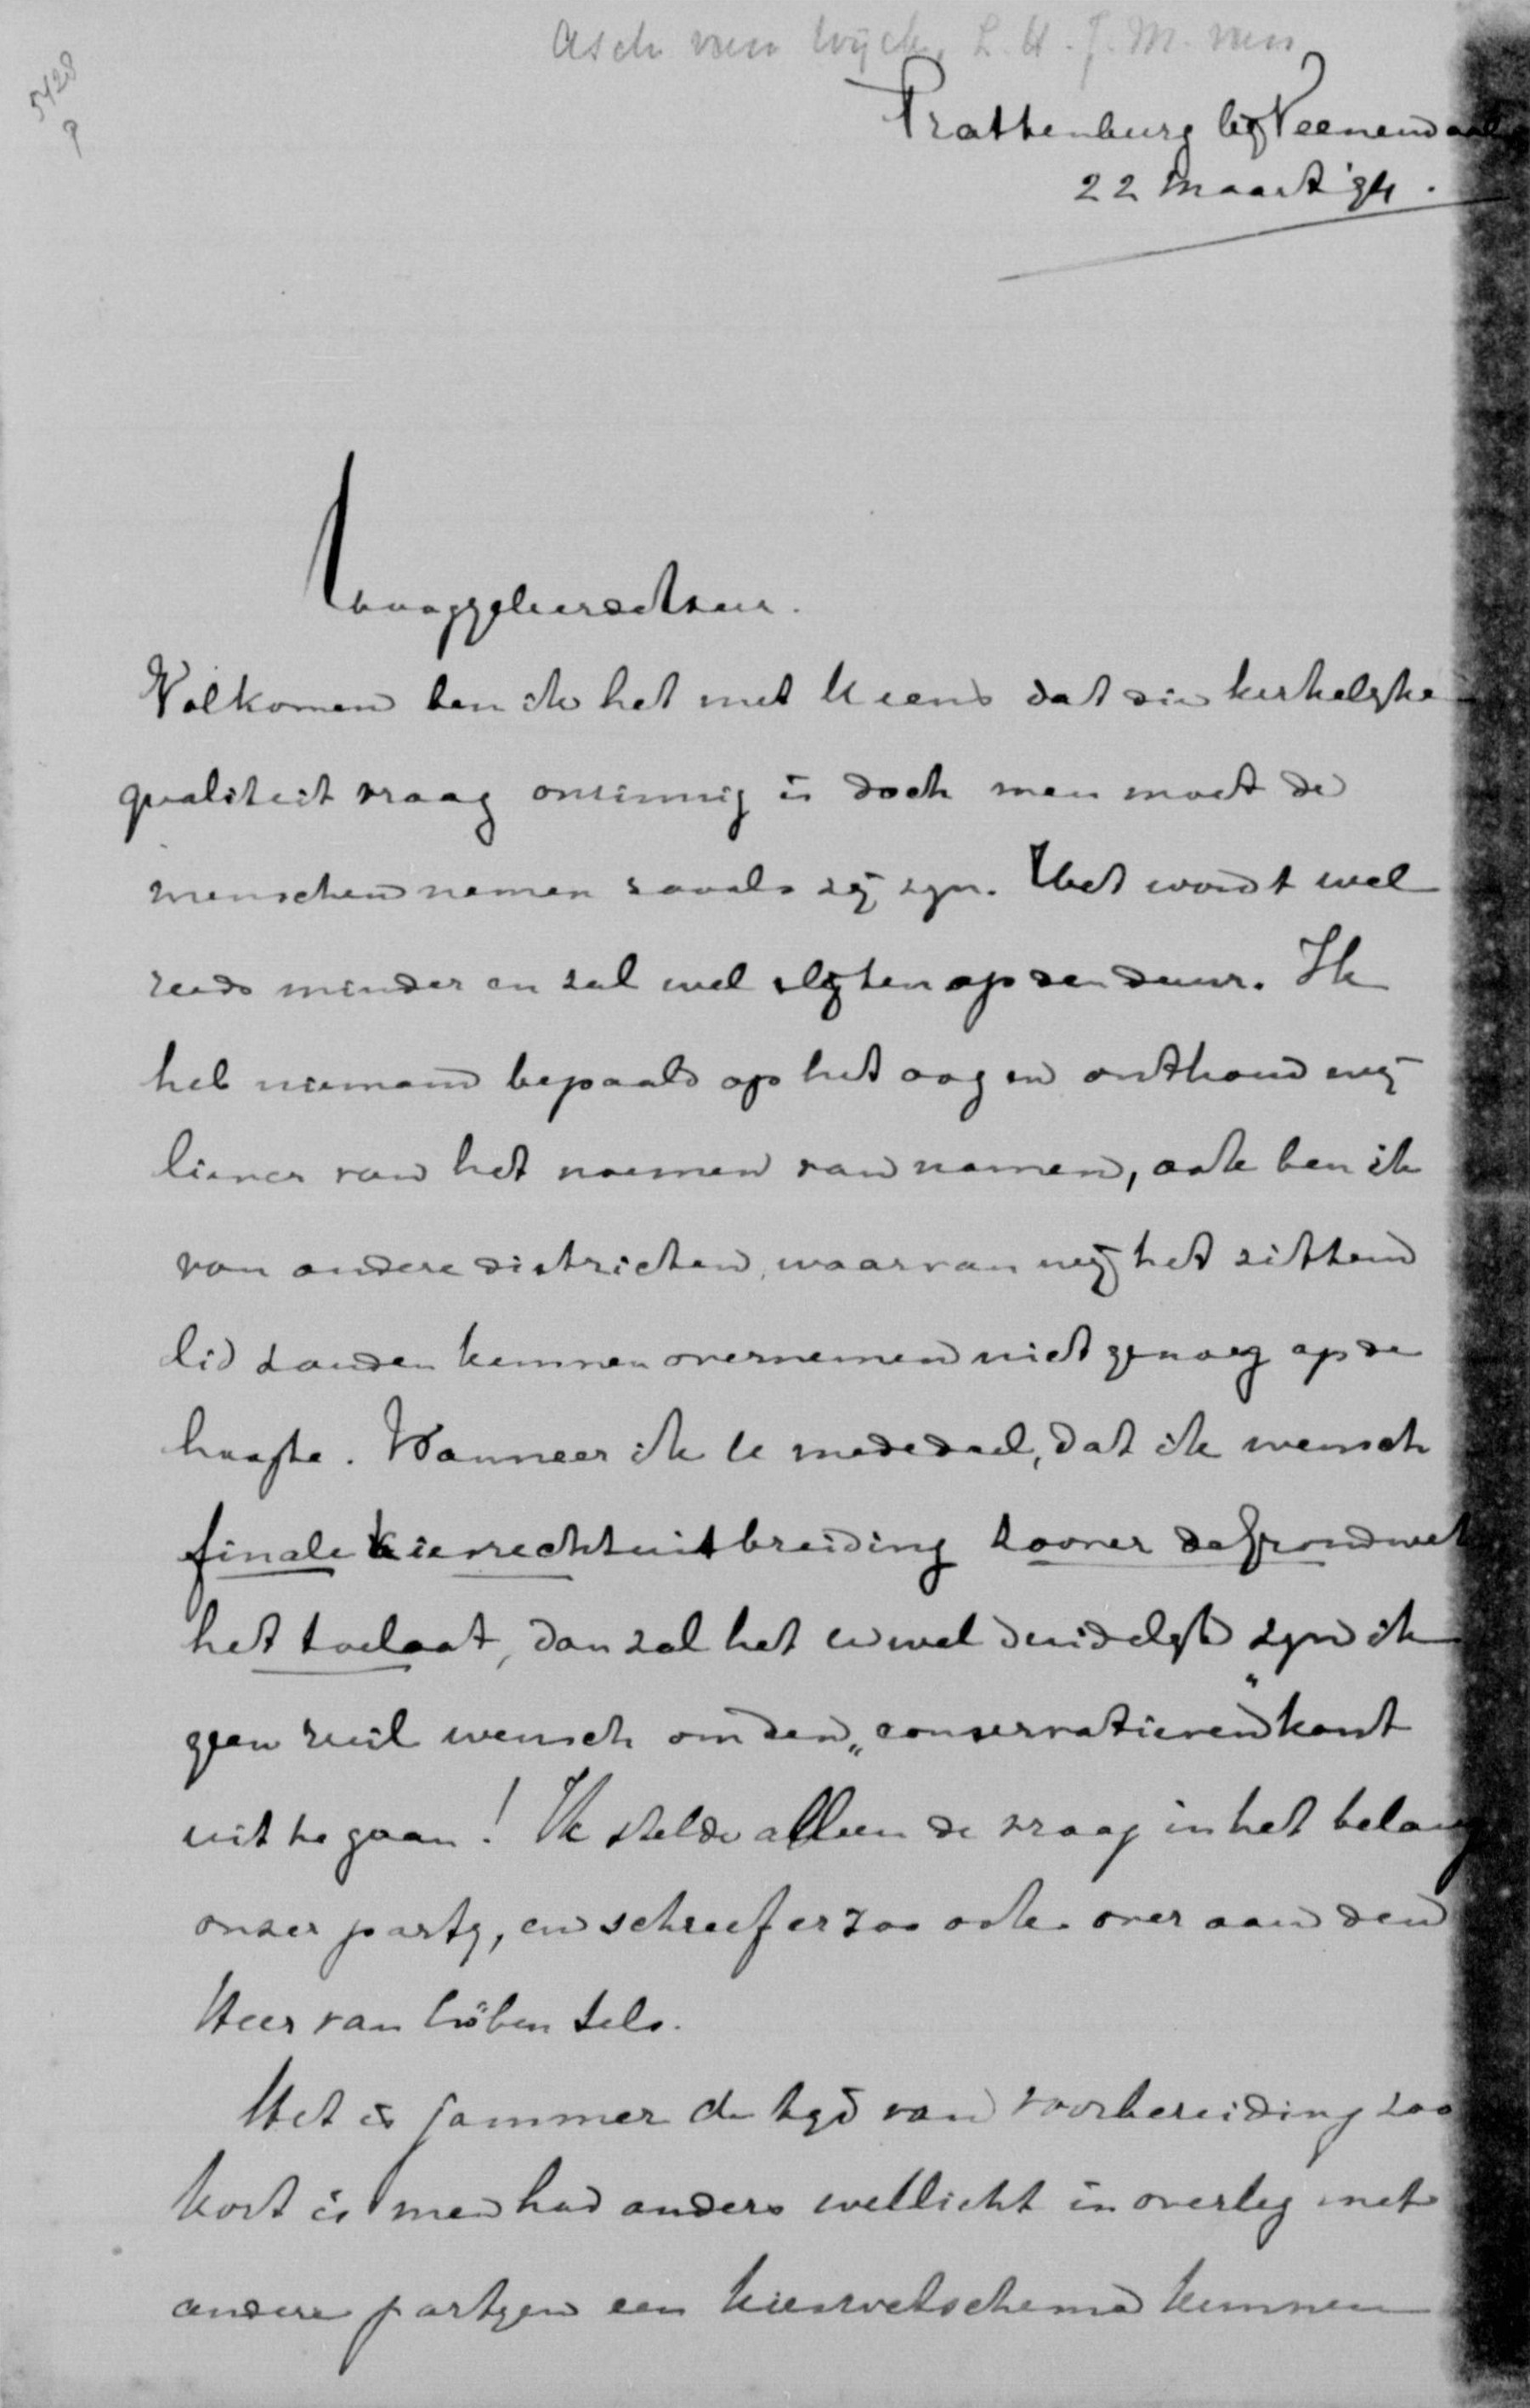 Asch van Wijck, L. H. J. M. van
5428
Prattenburg bij Veenendaal
22 Maart '94.
Hooggeleerde Heer.
Volkomen ben ik het met U eens dat die kerkelijke
qualiteit vraag onzinnig is doch men moet de
menschen nemen zooals zij zijn. Het wordt wel
reeds minder en zal wel slijten op den duur. Ik
heb niemand bepaald op het oog en onthoud mij
liever van het noemen van namen, ook ben ik
van andere districten, waarvan wij het zittend
lid zouden kunnen overnemen niet genoeg op de
hoogte. Wanneer ik U mededeel, dat ik wensch
finale kiesrechtuitbreiding zoover de Grondwet
het toelaat, dan zal het U wel duidelijk zijn ik
geen ruil wensch om den „conservatieven" kant
uit te gaan! Ik stelde alleen de vraag in het belang
onzer partij, en schreef er zoo ook over aan den
Heer van Löben Sels.
Het is jammer de tijd van voorbereiding zoo
kort is men had anders wellicht in overleg met
andere partijen een kieswetschema kunnen